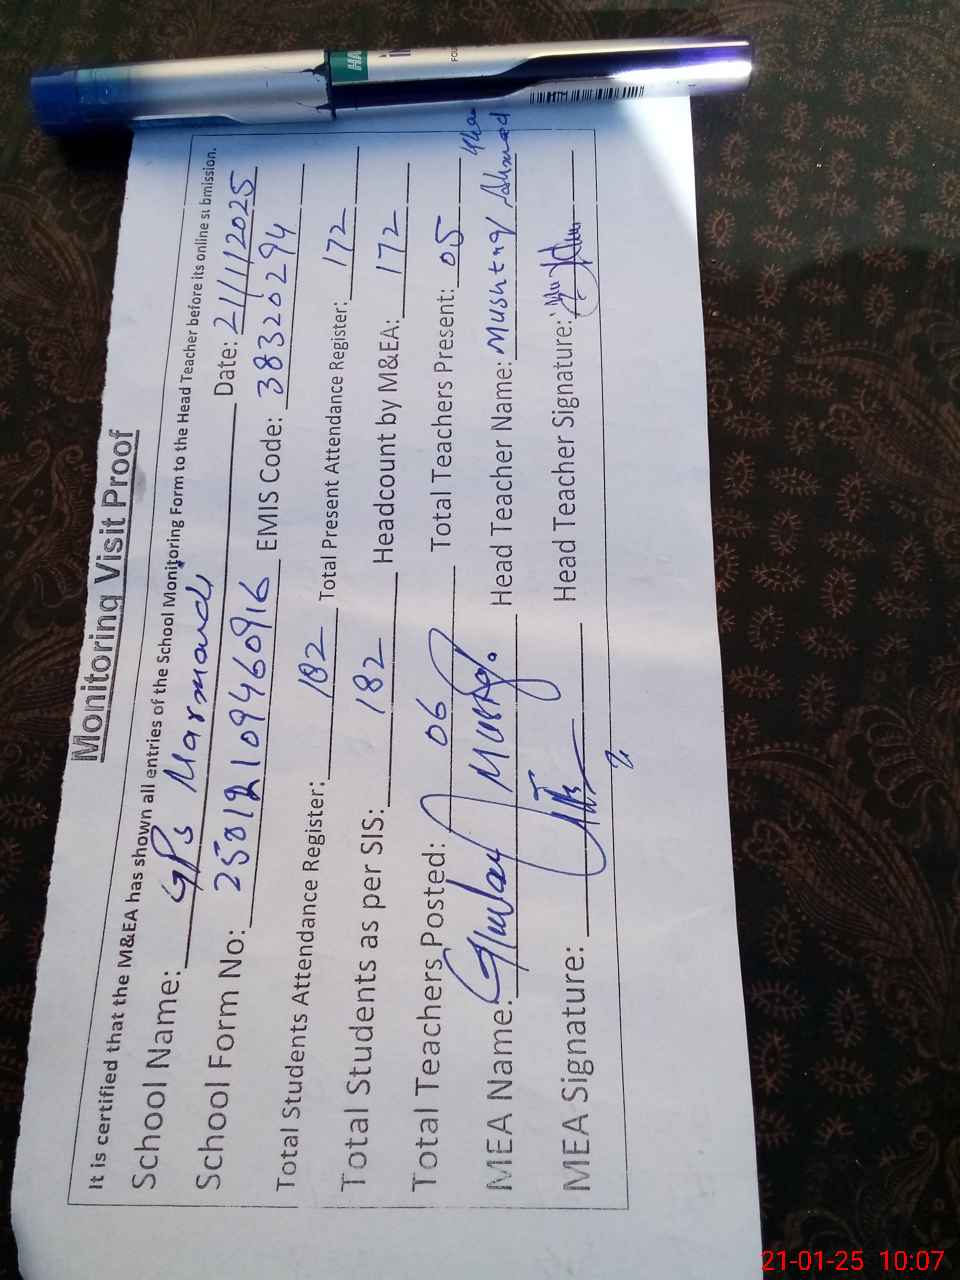 Monitoring Visit Proof
It is certified that the M&EA has shown all entries of the School Monitoring Form to the Head Teacher before its online submission.
School Name: GPS Marmandi Date: 21/1/2025
School Form No: 25012109460916 EMIS Code: 38320294
Total Students Attendance Register: 182 Total Present Attendance Register: 172
Total Students as per SIS: 182 Headcount by M&EA: 172
Total Teachers Posted: 06 Total Teachers Present: 05
MEA Name: Ghulam Head Teacher Name: Mushtaq Ahmed Khan
MEA Signature: Head Teacher Signature:
21-01-25 10:07